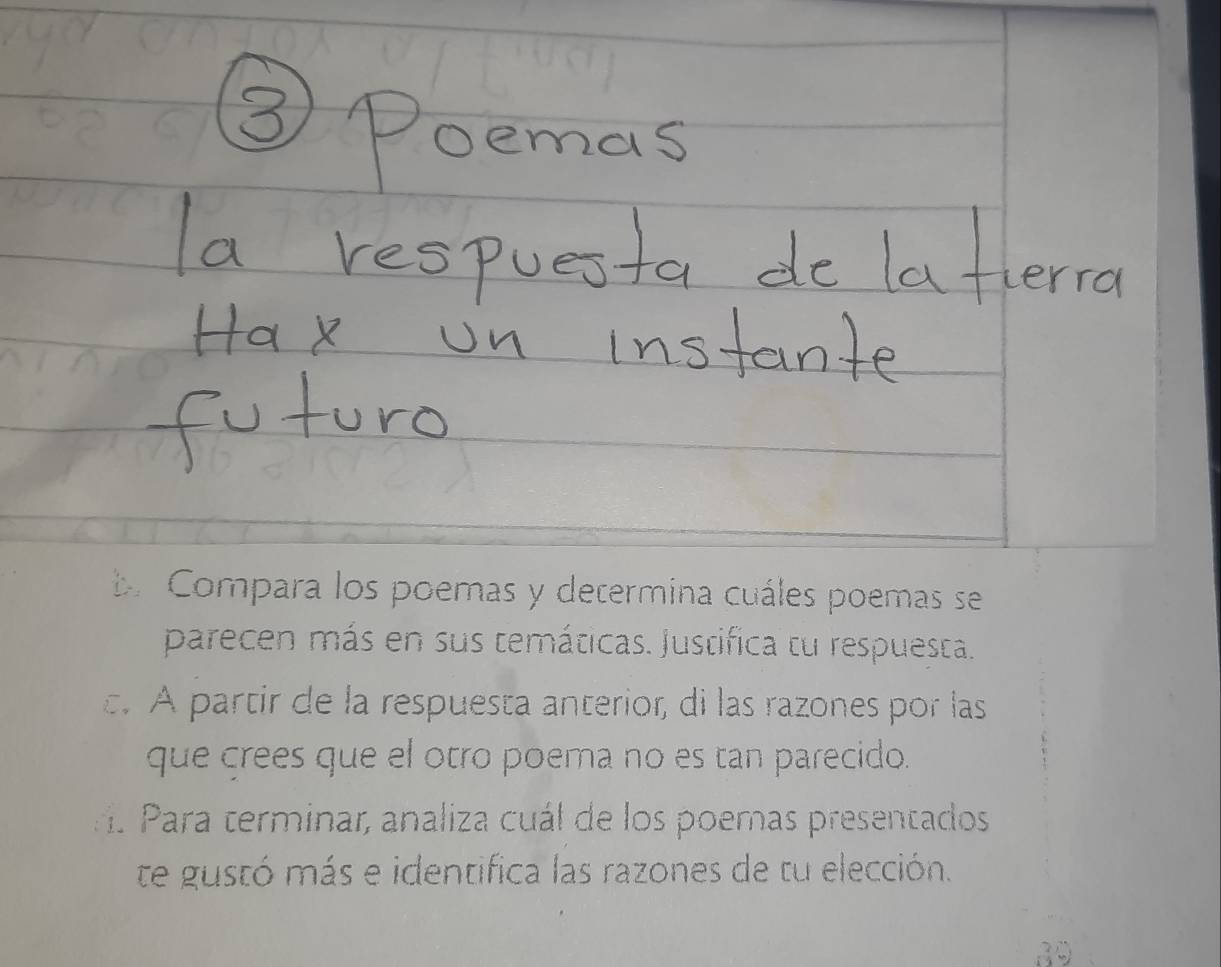 ③ Poemas
la respuesta de la tierra
Hax un instante
futuro
b. Compara los poemas y determina cuáles poemas se
parecen más en sus temáticas. Justifica tu respuesta.
c. A partir de la respuesta anterior, di las razones por las
que crees que el otro poema no es tan parecido.
i. Para terminar, analiza cuál de los poemas presentados
te gustó más e identifica las razones de tu elección.
39